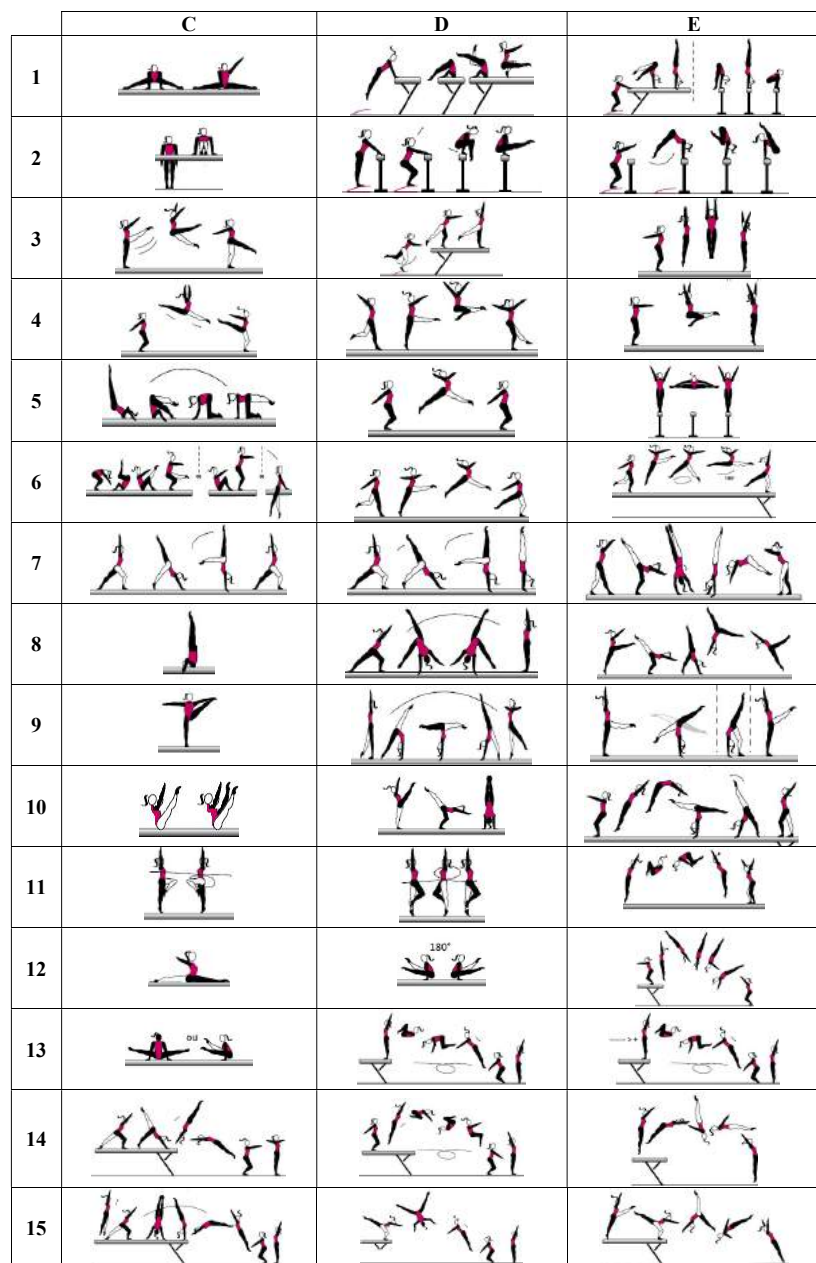 C D E
1
2
3
4
5
6
7
8
9
10
11
12 180°
13 ou
14
15